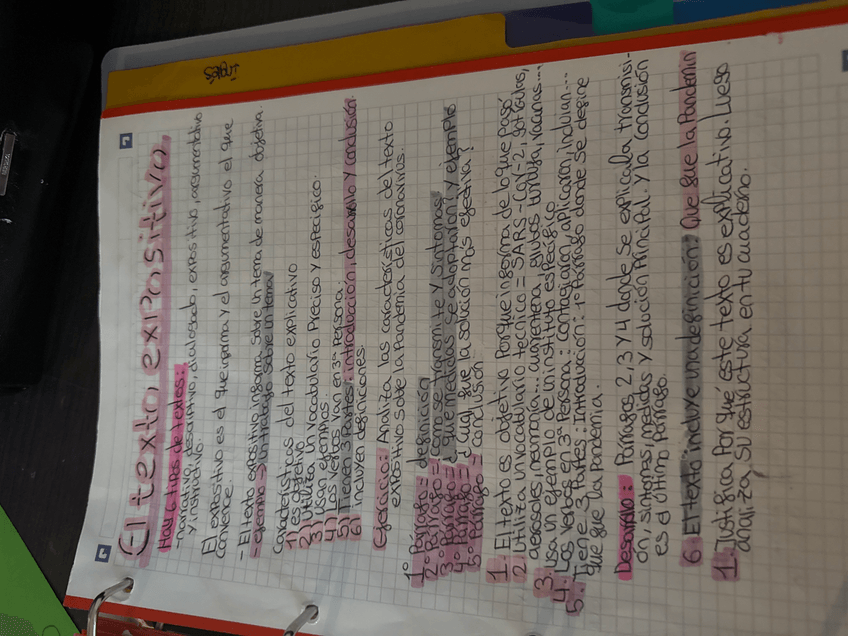 El texto expositivo
Hay 6 tipos de textos:
-narrativo, descriptivo, dialogado, expositivo, argumentativo
y instructivo.
El expositivo es el que informa y el argumentativo el que
convence.
- El texto expositivo informa sobre un tema de manera objetiva.
- ejemplo → un trabajo sobre un tema
Características del texto explicativo
1) es objetivo
2) Utiliza un vocabulario Preciso y específico.
3) Usa ejemplos.
4) Los verbos van en 3ª Persona.
5) Tienen 3 Partes: introducción, desarrollo y conclusión.
6) incluyen definiciones
Ejercicio: Analiza las características del texto
expositivo sobre la Pandemia del coronavirus.
1º Párrafo = definición
2º Párrafo = como se transmite y síntomas
3º Párrafo = ¿ que medidas se adoptaron? y ejemplo
4º Párrafo = ¿ cual fue la solución más efectiva?
5º Párrafo = conclusión
1. El texto es objetivo Porque informa de lo que pasó
2. Utiliza un vocabulario técnico = SARS-CoV-2, gotículas,
aerosoles, neumonía... cuarentena, vacunas...
3. usa un ejemplo de un instituto específico
4. Los verbos en 3ª Persona: contagiaron, aplicaron, incluían...
5. Tiene 3 Partes: Introducción: 1º Párrafo donde se define
que fue la Pandemia.
Desarrollo: Párrafos 2, 3 y 4 donde se explica la transmisi-
ón, síntomas, medidas y solución Principal. Y la conclusión
es el último Párrafo.
6. El texto incluye una definición: Que fue la Pandemia
1. Justifica Por que este texto es explicativo. Luego
analiza su estructura en tu cuaderno.